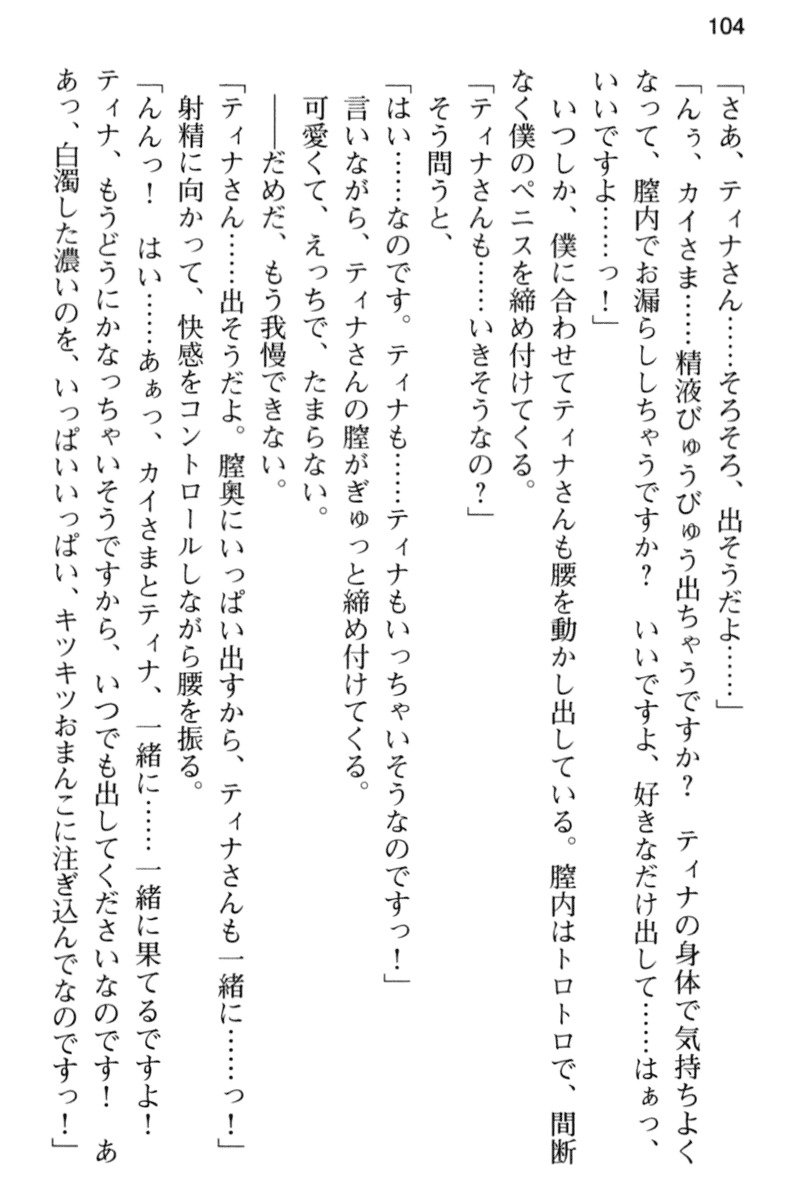 104
「さあ、ティナさん……そろそろ、出そうだよ……」
「んぅ、カイさま……精液びゅうびゅう出ちゃうですか？　ティナの身体で気持ちよく
なって、膣内でお漏らししちゃうですか？　いいですよ、好きなだけ出して……はぁっ、
いいですよ……っ！」
　いつしか、僕に合わせてティナさんも腰を動かし出している。膣内はトロトロで、間断
なく僕のペニスを締め付けてくる。
「ティナさんも……いきそうなの？」
　そう問うと、
「はい……なのです。ティナも……ティナもいっちゃいそうなのですっ！」
　言いながら、ティナさんの膣がぎゅっと締め付けてくる。
　可愛くて、えっちで、たまらない。
　――だめだ、もう我慢できない。
「ティナさん……出そうだよ。膣奥にいっぱい出すから、ティナさんも一緒に……っ！」
　射精に向かって、快感をコントロールしながら腰を振る。
「んんっ！　はい……あぁっ、カイさまとティナ、一緒に……一緒に果てるですよ！
ティナ、もうどうにかなっちゃいそうですから、いつでも出してくださいなのです！　あ
あっ、白濁した濃いのを、いっぱいいっぱい、キツキツおまんこに注ぎ込んでなのですっ！」